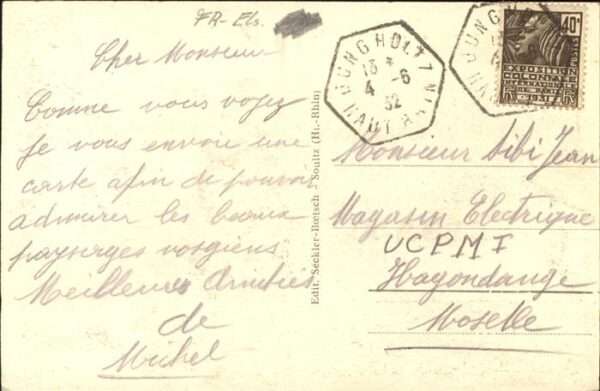 FR-Els.
Cher Monsieur
Comme vous voyez
Je vous envoie une
carte afin de pouvoir
admirer les beaux
paysages vosgiens
Meilleures Amitiés
de
Michel
Edit. Seckler-Rœtsch - Soultz (Ht.-Rhin)
JUNGHOLTZ
13 *
4 -6
32
HAUT RHIN
JUNGH
40c
POSTES
EXPOSITION
COLONIALE
INTERNATIONALE
PARIS 1931
Monsieur Bibi Jean
Magasin Electrique
UCPMI
Hagondange
Moselle